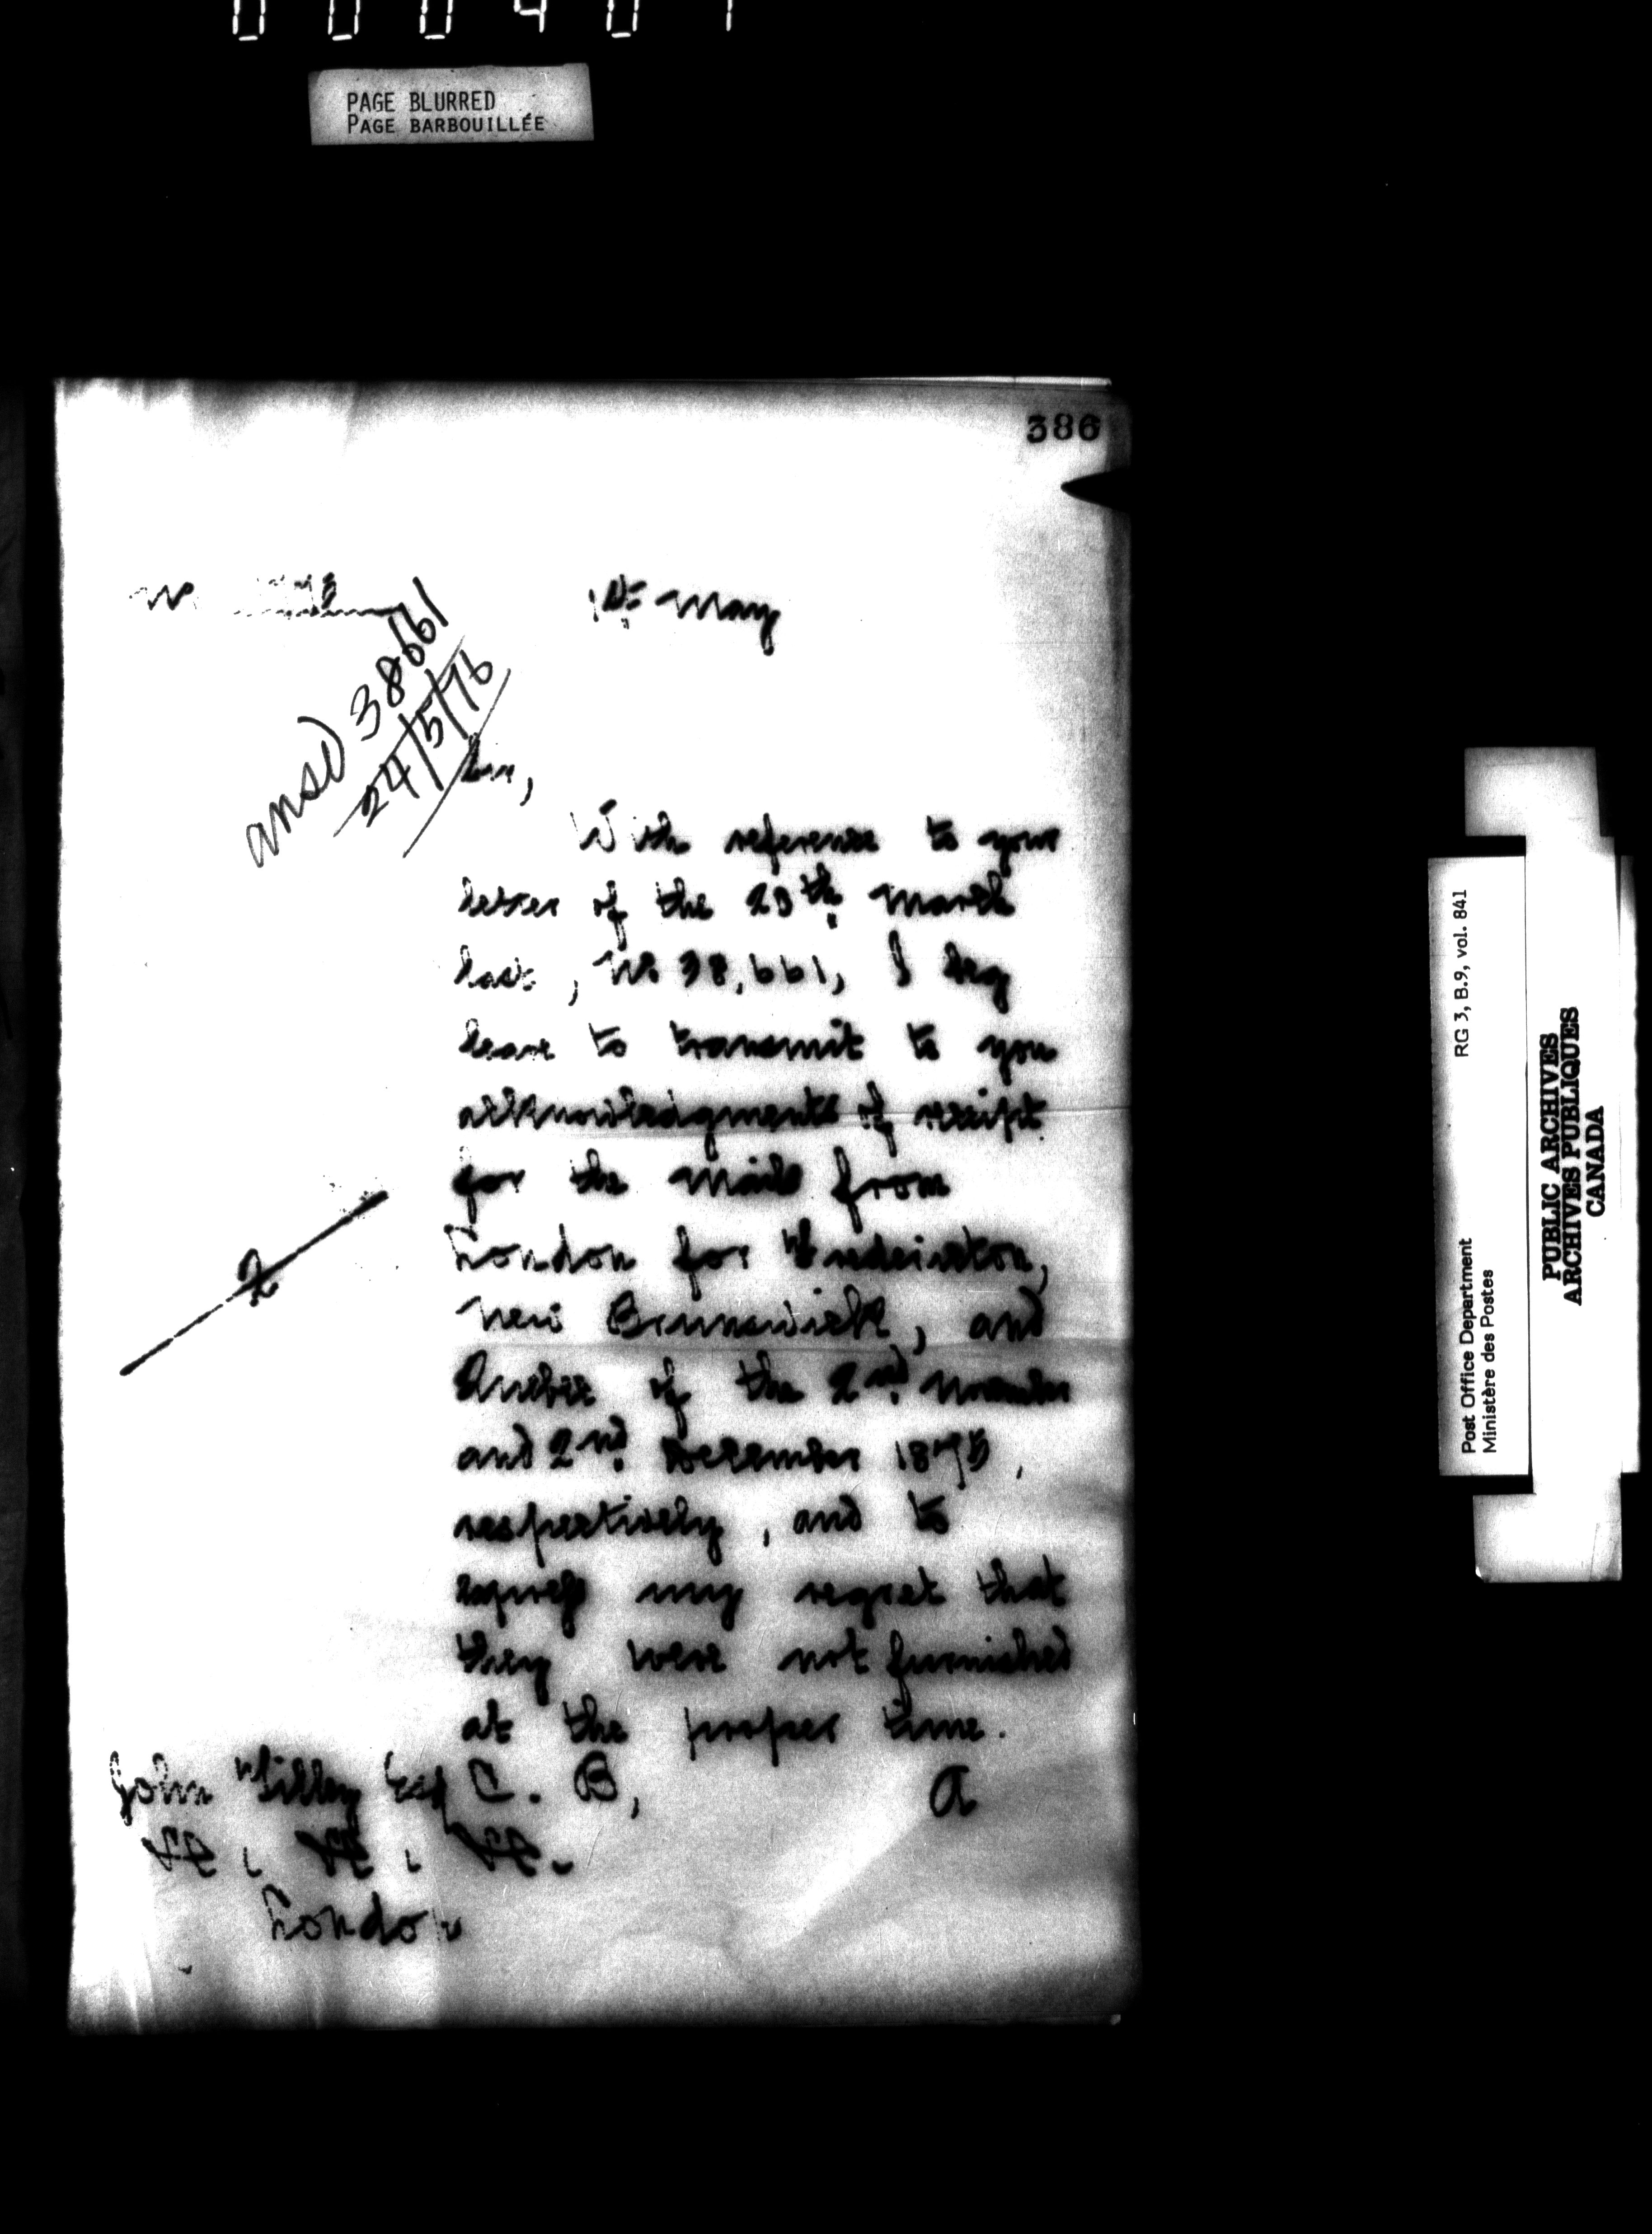 000401
PAGE BLURRED
PAGE BARBOUILLÉE
386
No
May
ansd 38661
24/5/76
Sir,
With reference to your
letter of the 23th March
last, No 38,661, I beg
leave to transmit to you
acknowledgments of receipt
for the Mails from
London for Fredericton,
New Brunswick, and
Quebec of the 2nd November
and 2nd December 1875,
respectively, and to
express my regret that
they were not furnished
at the proper time.
John Tilley Esq C. B,
A
&c, &c, &c.
London
2
RG 3, B.9, vol. 841
Post Office Department
Ministère des Postes
PUBLIC ARCHIVES
ARCHIVES PUBLIQUES
CANADA